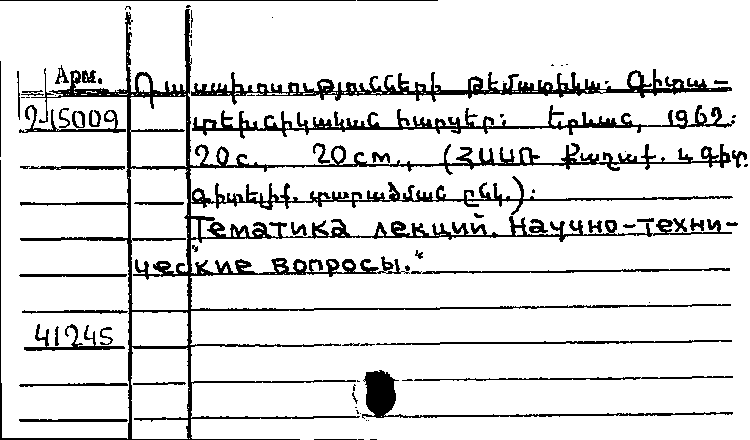 Арм.
Դասախոսությունների թեմատիկա: Գիտա-
2-15009 տեխնիկական հարցեր: Երևան, 1962:
20с., 20см., (ՀՍՍՌ Քաղաք. և գիտ.
գիտելիք. տարածման ընկ.):
"Тематика лекций. Научно-техни-
ческие вопросы."
41245